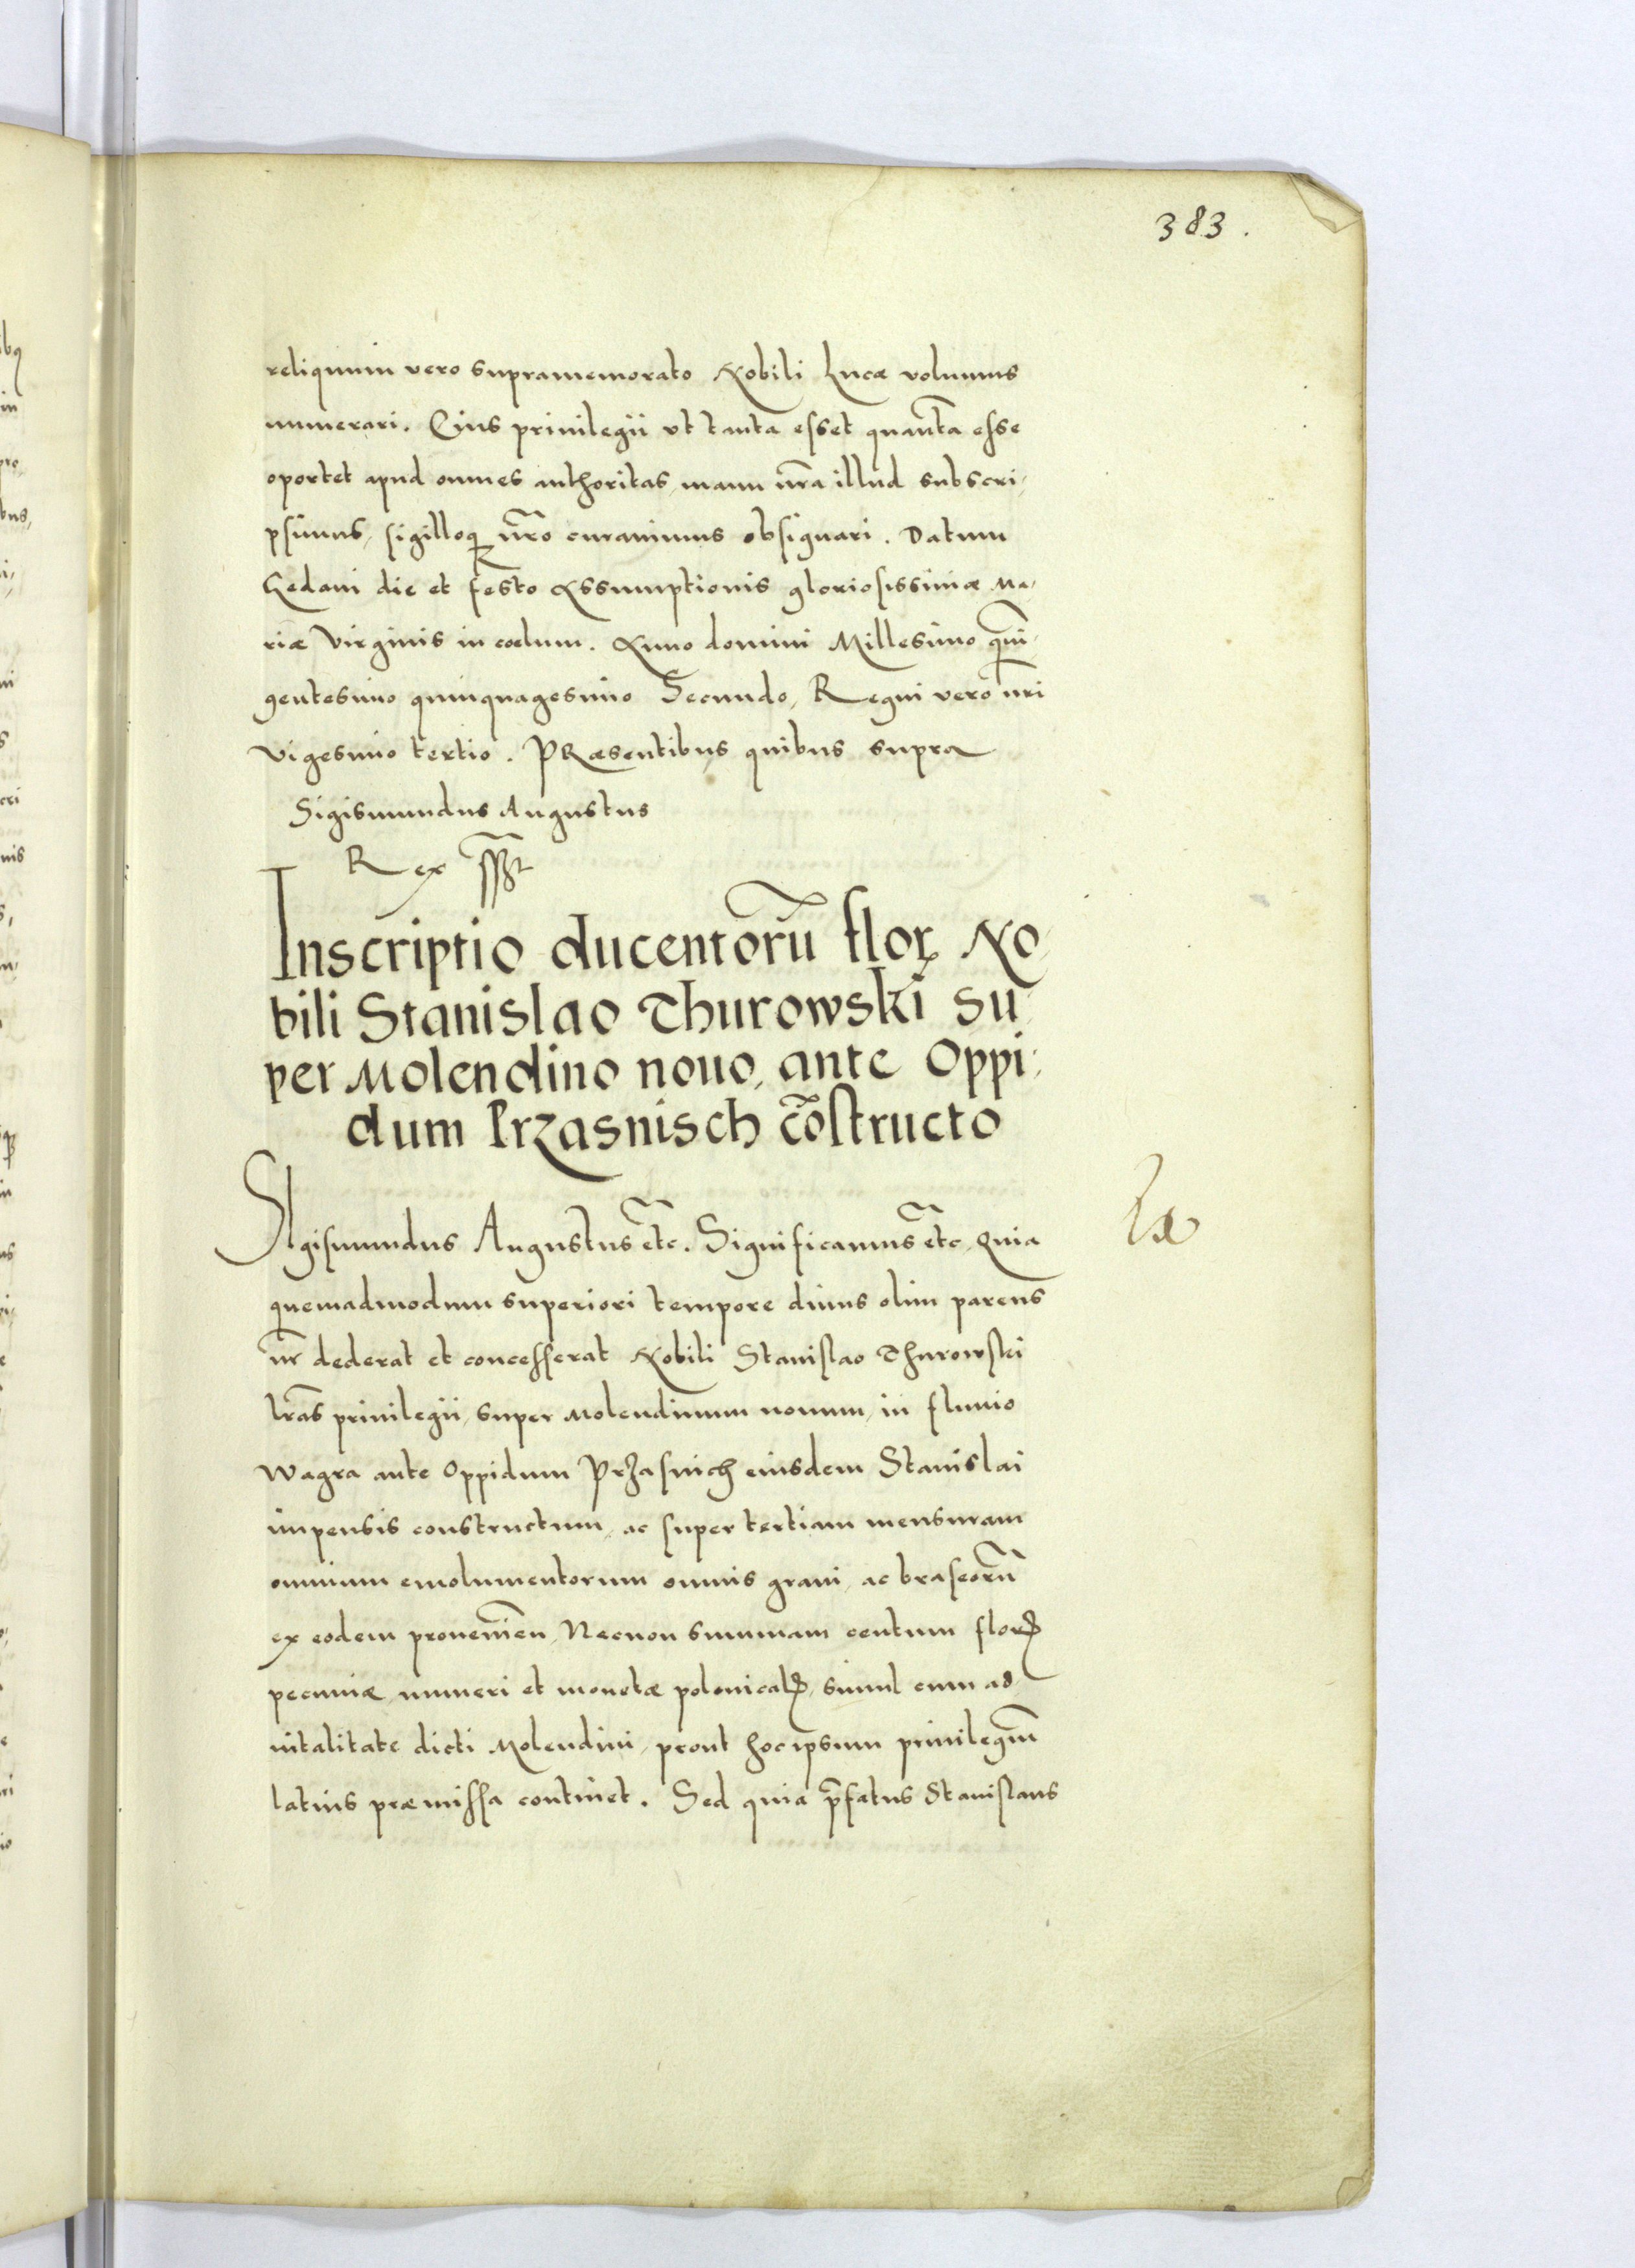 383.
reliquum vero supramemorato Nobili Lucæ volumus
numerari. Eius priuilegii vt tanta esset quãta esse
oportet apud omnes authoritas, manu nr̃a illud subscri,
psimus, sigilloq; nr̃o curauimus obsignari. Datum
Gedani die et festo Assumptionis gloriosissimæ Ma,
riæ Virginis in coelum. Anno domini Millesimo quin̄,
gentesimo quinquagesimo Secundo, Regni vero nr̃i
vigesimo tertio. PRæsentibus quibus supra
Sigismundus Augustus
Rex
Inscriptio ducentorũ flor. No,
bili Stanislao Thurowski su,
per Molendino nouo, ante Oppi,
dum Przasnisch cõstructo
SIgismundus Augustus etc̃. Significamus etc̃. Quia
quemadmodum superiori tempore diuus olim parens
nr̃ dederat et concesserat Nobili Stanislao Thurowski
lr̃as priuilegii, super Molendinum nouum, in fluuio
Wagra ante Oppidum Przasnich eiusdem Stanislai
impensis constructum, ac super tertiam mensuram
omnium emolumentorum omnis grani, ac braseorũ
ex eodem prouenien̄, Necnon summam centum flor.
pecuniæ, numeri et monetæ polonical., simul cum ad,
uitalitate dicti Molendini, prout hoc ipsum priuilegiũ
latius præmissa continet. Sed quia p̃fatus Stanislaus